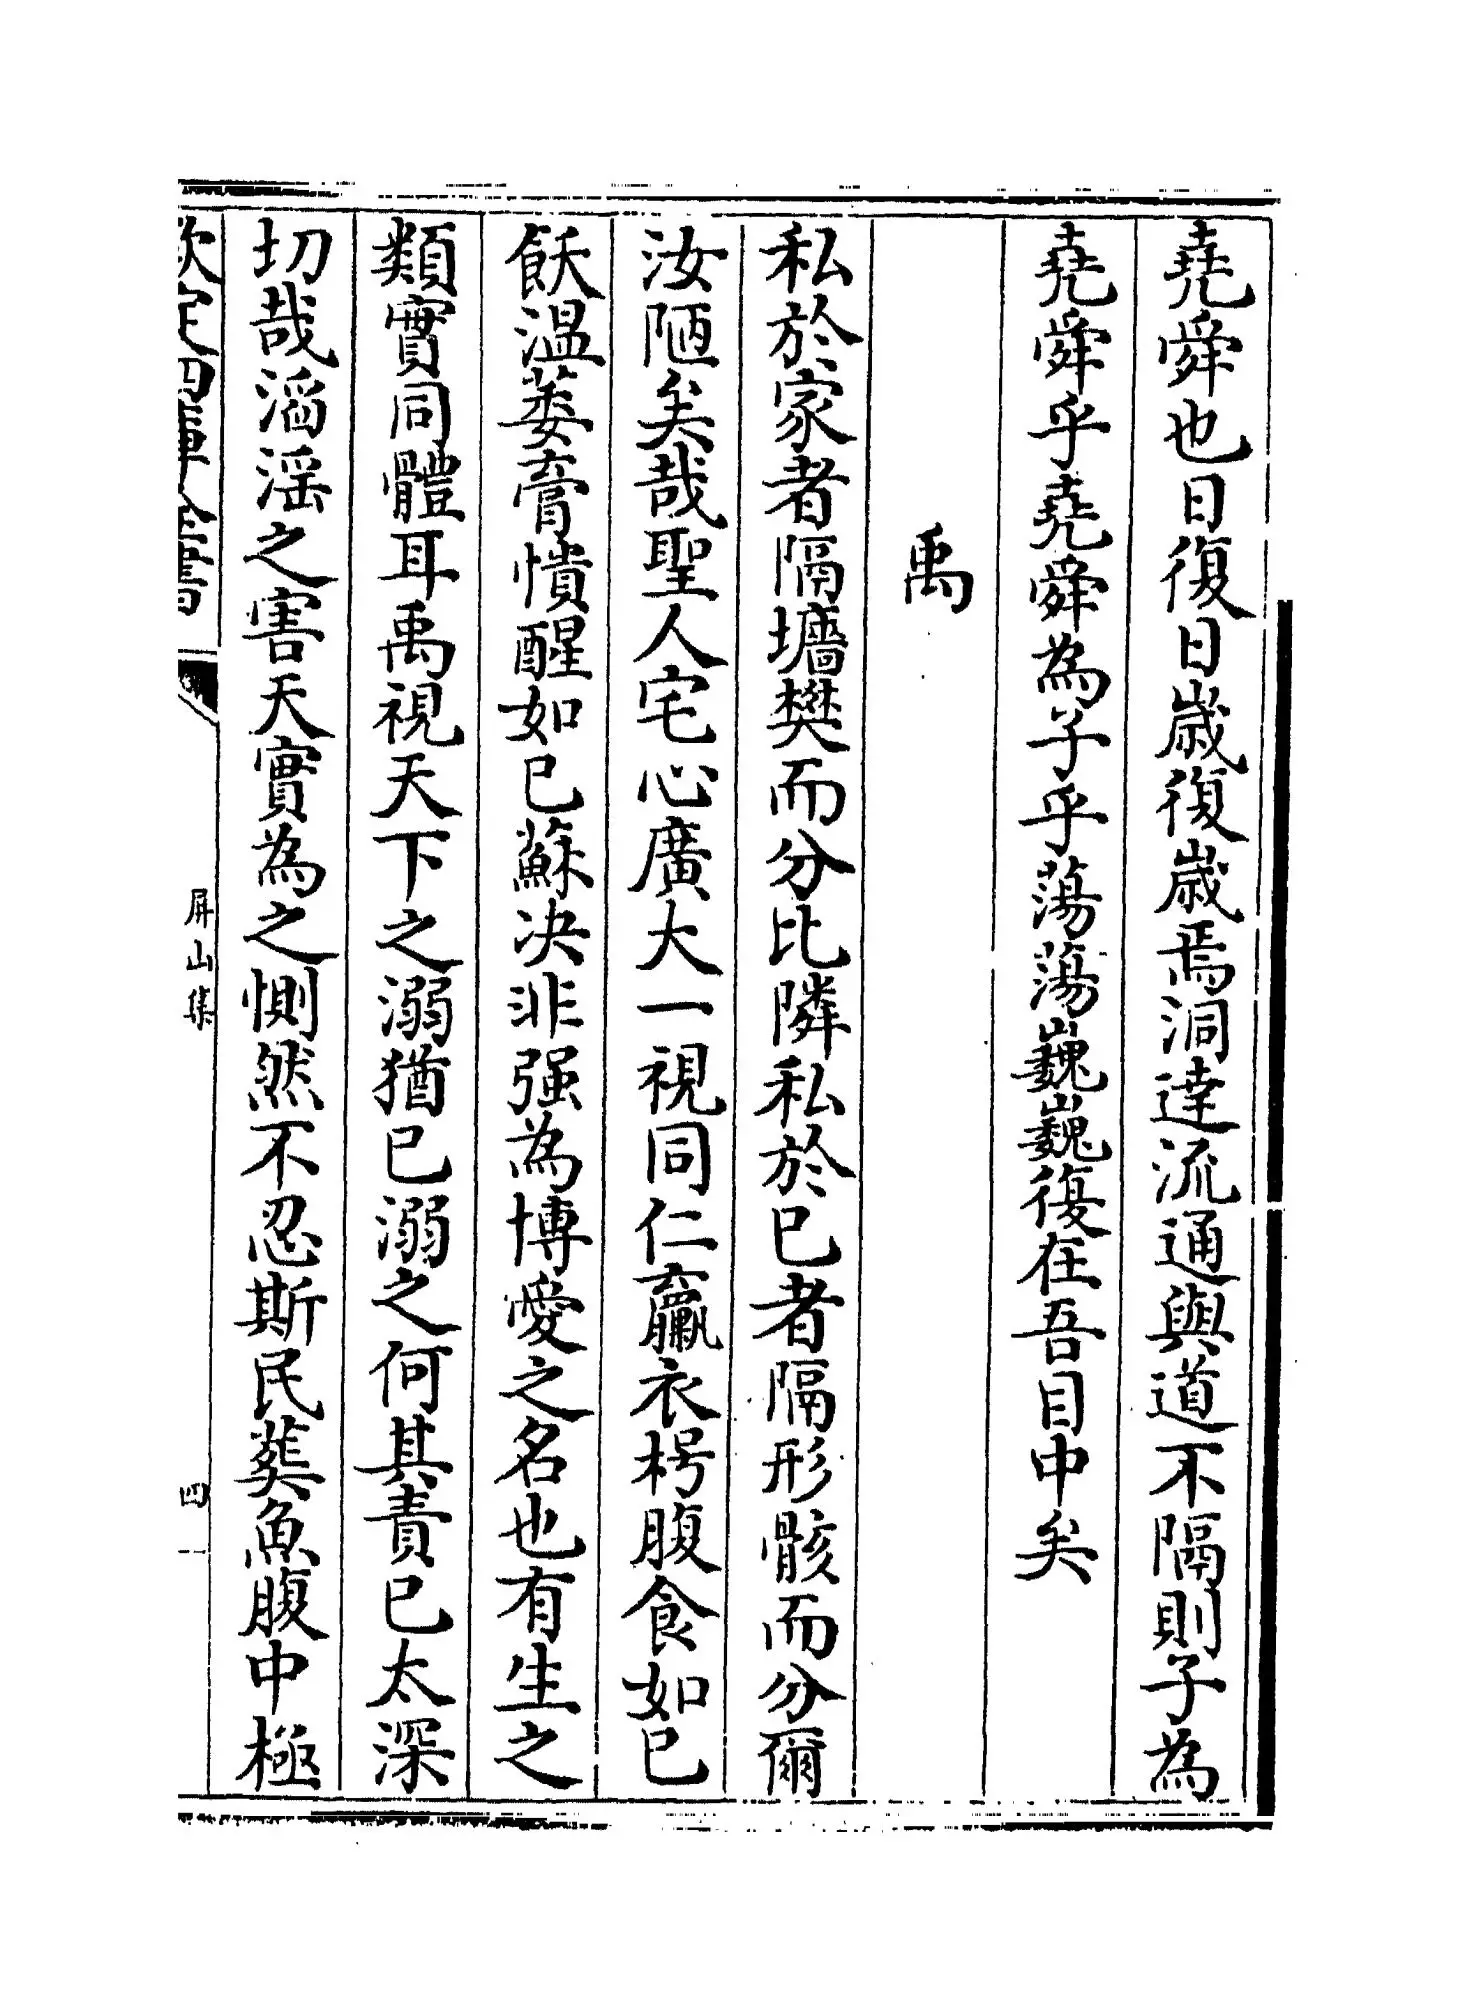 堯舜也日復日歲復歲焉洞達流通與道不隔則子為
堯舜乎堯舜為子乎蕩蕩巍巍復在吾目中矣
禹
私於家者隔墻樊而分比隣私於已者隔形骸而分爾
汝陋矣哉聖人宅心廣大一視同仁羸衣枵腹食如已
飫温萎膏憒醒如已蘇决非强為博愛之名也有生之
類實同體耳禹視天下之溺猶已溺之何其責已太深
切哉滔滛之害天實為之惻然不忍斯民葬魚腹中極
欽定四庫全書
屏山集
四